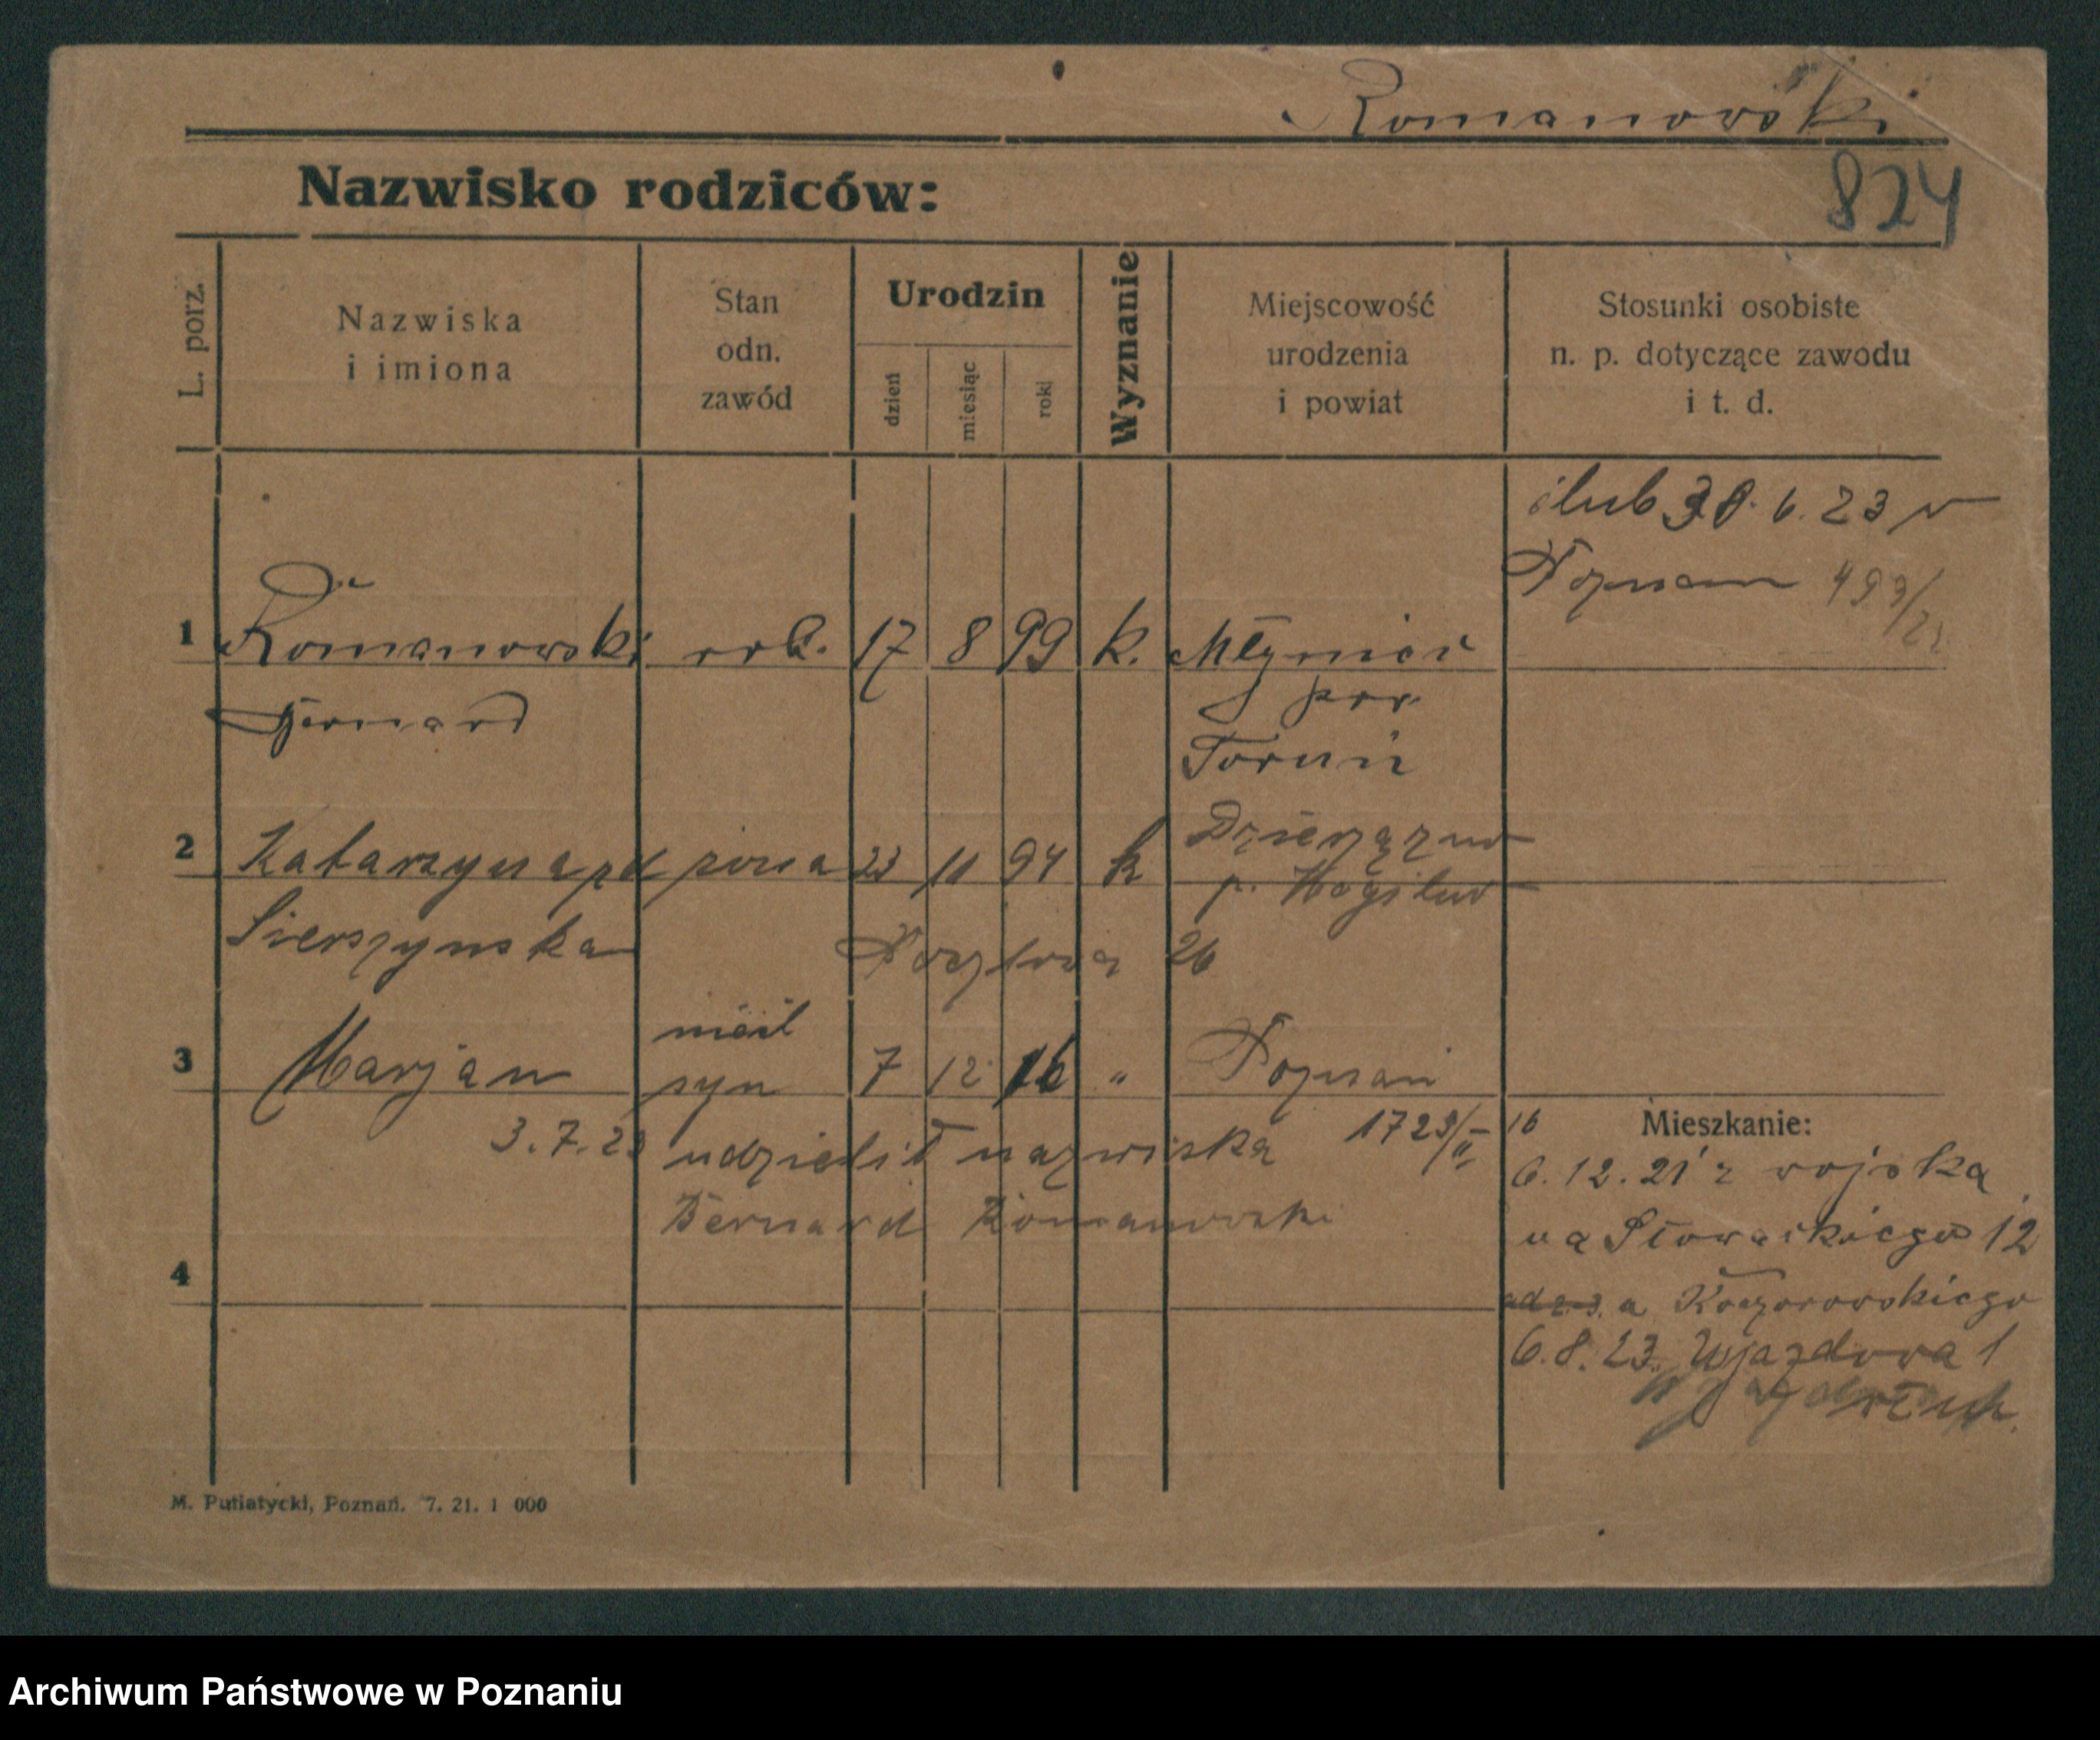 Romanowski
Nazwisko rodziców:
824
L. porz.
Nazwiska
i imiona
Stan
odn.
zawód
Urodzin
dzień
miesiąc
roki
Wyznanie
Miejscowość
urodzenia
i powiat
Stosunki osobiste
n. p. dotyczące zawodu
i t. d.
ślub 30. 6. 23 w
Poznan 499/23
1 Romanowski rob. 17 8 99 k. Młyniec
Bernard pow.
Toruń
2 Katarzyna zd żona 23 11 94 k
p. Mogilno
Sierszynska Pocztowa 26
3 Marjan syn 7 12 16 " Poznań
3.7.23 udzielił nazwiska 1723/II 16
Bernard Romanowski
Mieszkanie:
6. 12. 21 z wojska
na Słowackiego 12
a Koczorowskiego
6. 8. 23. Wjazdowa 1
4
M. Putiatycki, Poznań. 7. 21. 1 000
Archiwum Państwowe w Poznaniu